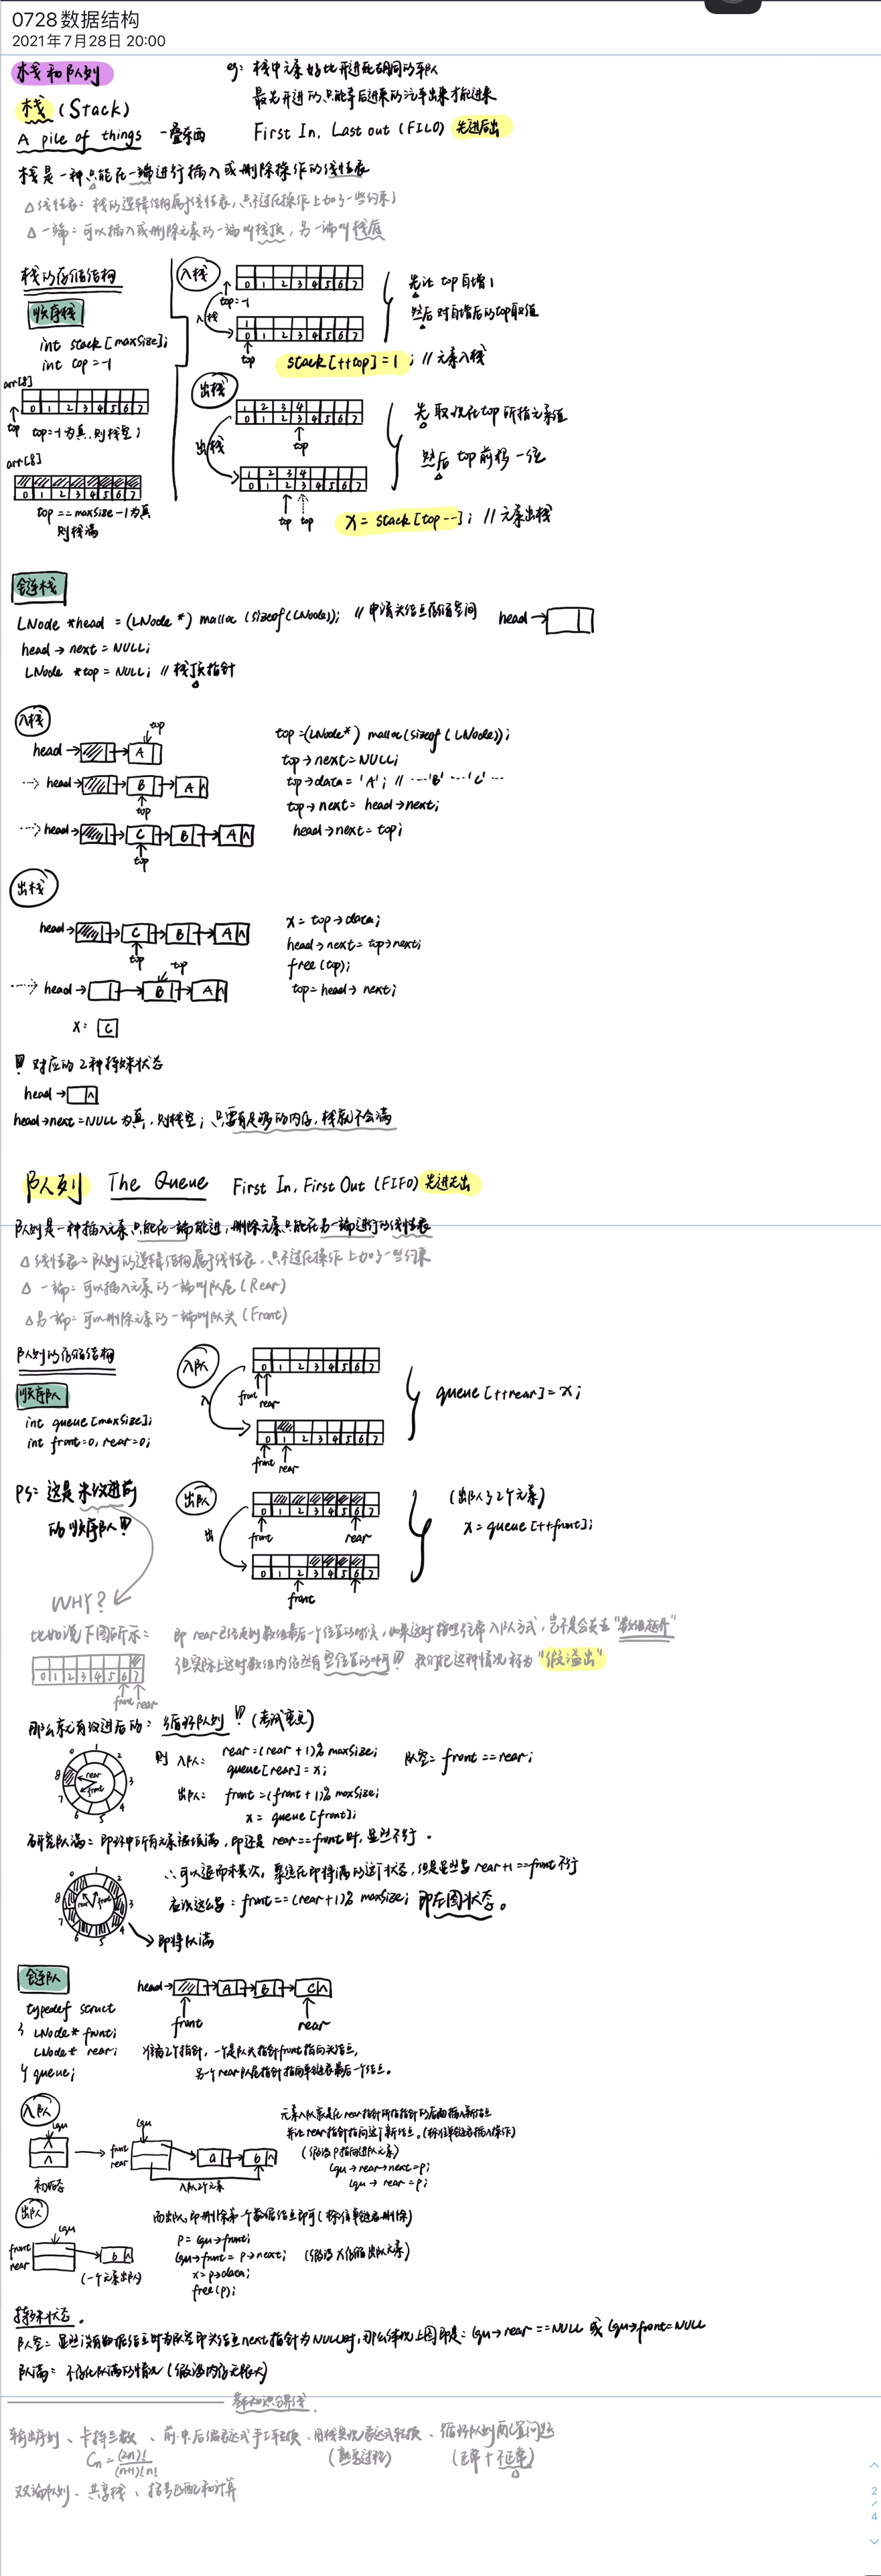 0728数据结构
2021年7月28日 20:00
栈和队列
eg: 栈中元素好比开进死胡同的车队
最先开进的只能等后进来的汽车出来才能进来
栈 (Stack)
A pile of things 一叠东西
First In, Last out (FILO) 先进后出
栈是一种只能在一端进行插入或删除操作的线性表
△线性表: 栈的逻辑结构属于线性表, 只不过在操作上加了一些约束
△一端: 可以插入或删除元素的一端叫栈顶, 另一端叫栈底
栈的存储结构
顺序栈
int stack [maxSize];
int top = -1
arr[8]
0 1 2 3 4 5 6 7
top top=-1为真, 则栈空;
arr[8]
0 1 2 3 4 5 6 7
top == maxSize -1为真
则栈满
入栈
0 1 2 3 4 5 6 7
top=-1
入栈
1
0 1 2 3 4 5 6 7
top
先让 top 自增 1
然后 对自增后的top取值
stack [++top] = 1; // 元素入栈
出栈
1 2 3 4
0 1 2 3 4 5 6 7
top
出栈
1 2 3 4
0 1 2 3 4 5 6 7
top top
先取现在top所指元素值
然后 top 前移一位
x = stack [top--]; // 元素出栈
链栈
LNode *head = (LNode *) malloc (sizeof (LNode)); // 申请头结点存储空间 head→
head → next = NULL;
LNode *top = NULL; // 栈顶指针
入栈
top
head→ A
head→ B A ∧
top
head→ C B A ∧
top
top=(LNode*) malloc(sizeof (LNode));
top→next=NULL;
top→data = 'A'; // ···'B' ···'C' ···
top→next= head→next;
head→next= top;
出栈
head→ C B A ∧
top
top
head→ B A ∧
x: C
x= top→data;
head→next= top→next;
free (top);
top= head→ next;
!! 对应的2种特殊状态
head→ ∧
head→next=NULL 为真, 则栈空; 只要有足够的内存, 栈就不会满
队列 The Queue First In, First Out (FIFO) 先进先出
队列是一种插入元素只能在一端能进, 删除元素只能在另一端进行的线性表
△线性表: 队列的逻辑结构属于线性表, 只不过在操作上加了一些约束
△一端: 可以插入元素的一端叫队尾 (Rear)
△另一端: 可以删除元素的一端叫队头 (Front)
队列的存储结构
顺序队
int queue [maxSize];
int front=0, rear=0;
入队
0 1 2 3 4 5 6 7
front rear
入
0 1 2 3 4 5 6 7
front rear
queue [++rear] = x;
PS: 这是未改进前
的顺序队!!
出队
0 1 2 3 4 5 6 7
front rear
出
0 1 2 3 4 5 6 7
front
(出队了2个元素)
x = queue [++front];
WHY?
比如说下图所示:
0 1 2 3 4 5 6 7
front rear
即 rear已经走到数组最后一个位置的时候, 如果这时按照往常入队方式, 岂不是会发生 "数组越界"
但实际上这时数组内依然有空位置的啊!! 我们把这种情况称为 "假溢出"
那么就有改进后的: 循环队列 !! (考试重点)
0 1 2 3 4 5 6 7 8
rear
front
则 入队: rear = (rear +1) % maxSize;
queue [rear] = x;
出队: front = (front +1) % maxSize;
x = queue [front];
队空: front == rear;
研究队满: 即环中所有元素被填满, 即还是 rear == front 时, 显然不行.
0 1 2 3 4 5 6 7 8
rear front
∴ 可以退而求其次, 聚焦在即将满的这个状态, 但是显然写 rear+1 == front 不行
应该这么写: front == (rear+1) % maxSize; 即左图状态。
即将队满
链队
typedef struct
{ LNode* front;
LNode* rear;
} queue;
head→ A B C ∧
front rear
准备2个指针, 一个是队头指针front指向头结点,
另一个rear队尾指针指向单链表最后一个结点。
入队
lqu
∧
∧
初始态
lqu
front
rear
a b ∧
入队2个元素
元素入队就是让rear指针所指指针的后面插入新结点
并让rear指针指向这个新结点. (标准单链表插入操作)
(假设P指向进队元素)
lqu → rear→next =p;
lqu → rear =p;
出队
lqu
front
rear
b ∧
(一个元素出队)
而出队, 即删除第一个数据结点即可 (标准单链表删除)
P = lqu→front;
lqu→front = p→next; (假设X存储出队元素)
x = p→data;
free (p);
特殊状态.
队空: 显然没有数据结点时为队空即头结点next指针为NULL时, 那么体现上图即是: lqu→rear ==NULL 或 lqu→front=NULL
队满: 不存在队满的情况 (假设内存无限大)
基本知识分界线.
输出序列、卡特兰数、前·中·后缀表达式手工转换、用栈实现表达式转换、循环队列配置问题
Cn = (2n)! / (n+1)! n!
(熟悉过程) (正常 + 不正常)
双端队列、共享栈、括号匹配和计算
2
/
4